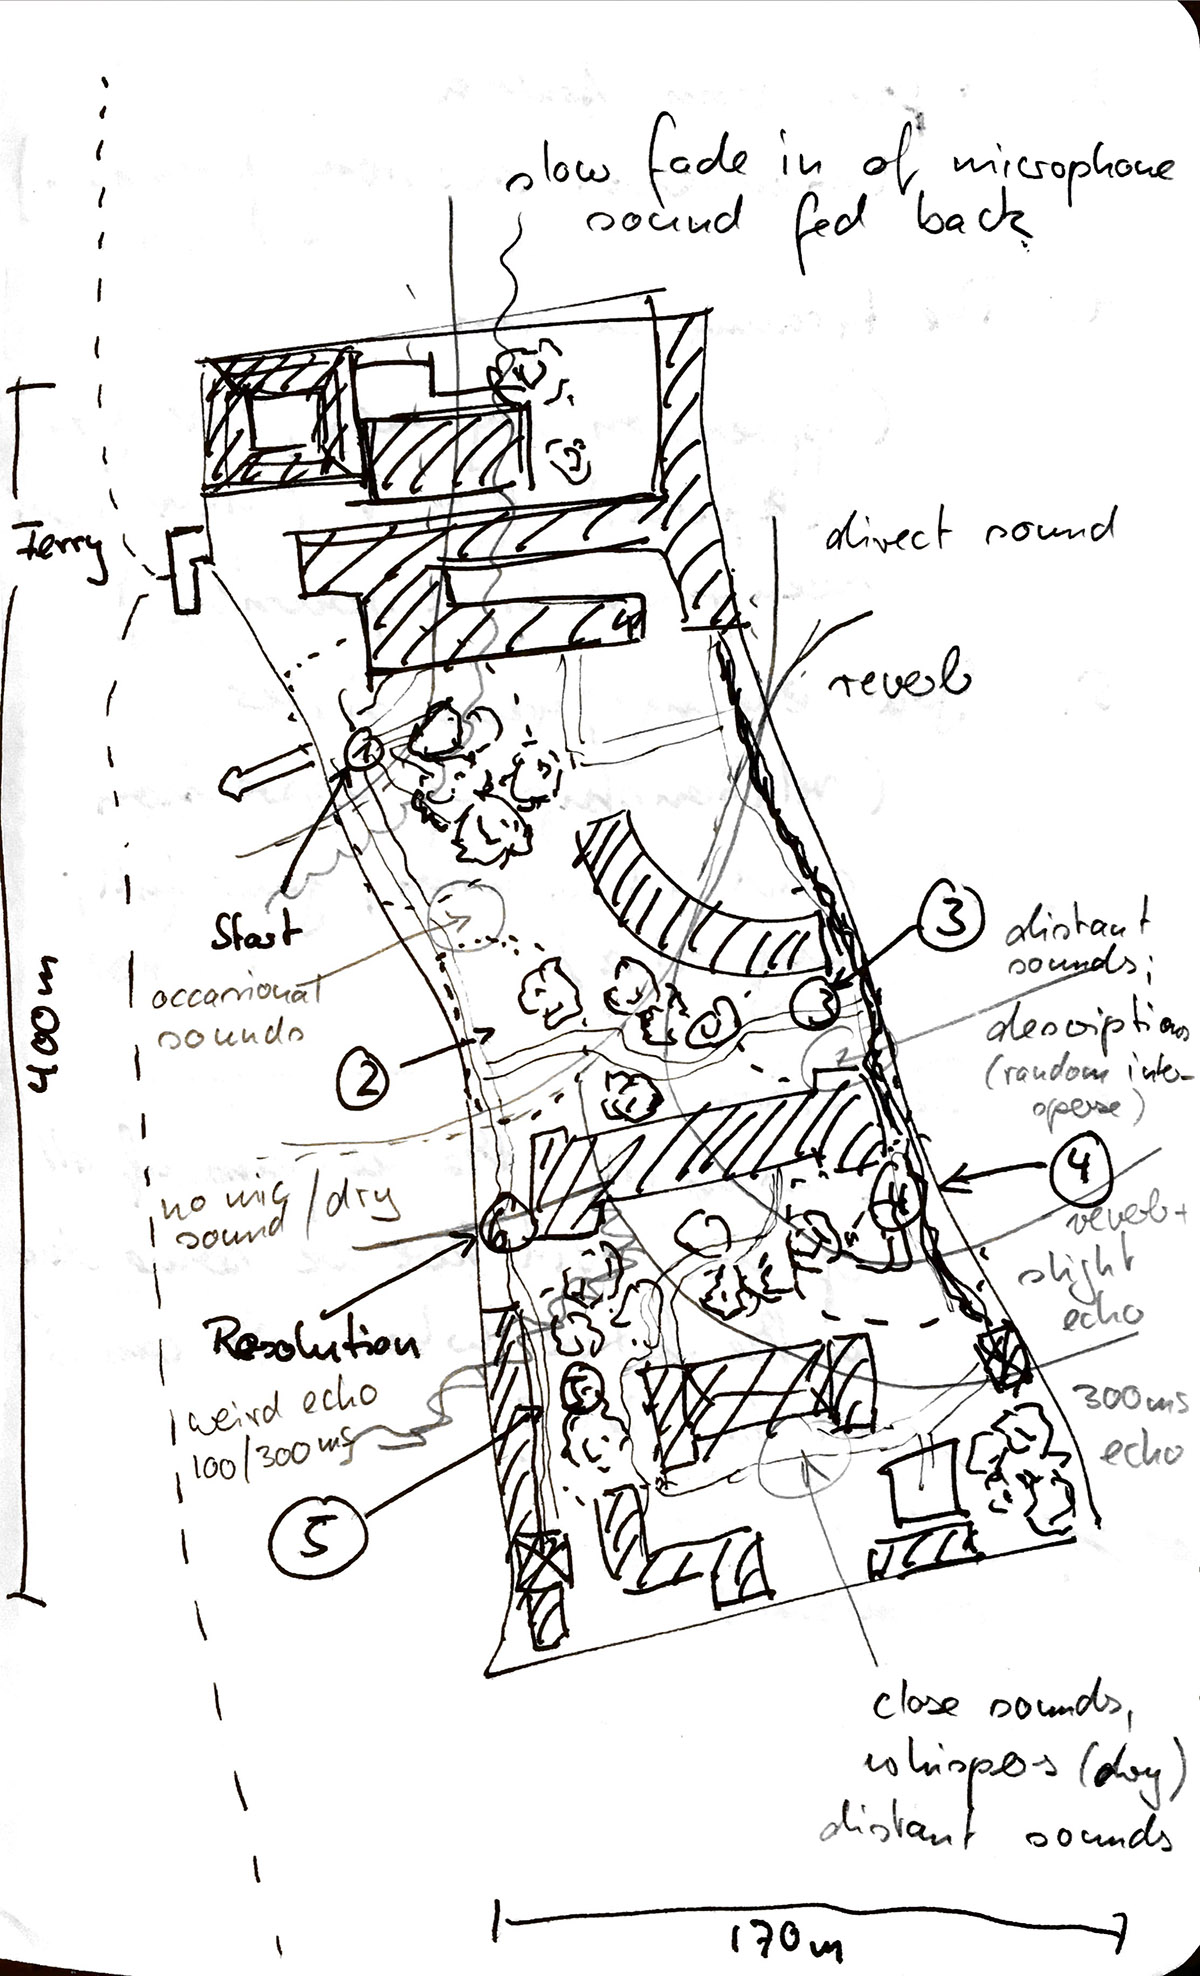 slow fade in of microphone
sound fed back
Ferry
direct sound
reverb
1
Start
occasional
sounds
3
distant
sounds;
descriptions
(random inter-
sperse)
400m
2
3
4
4
reverb +
slight
echo
no mic
sound / dry
6
Resolution
weird echo
100/300ms
5
5
300ms
echo
close sounds,
whispers (dry)
distant sounds
170m